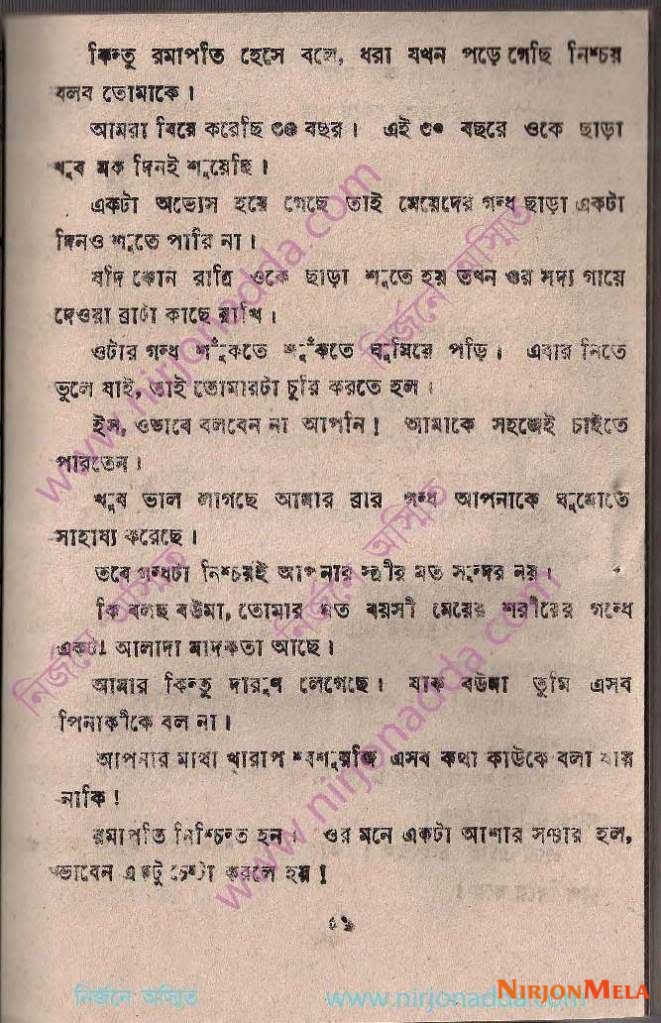 কিন্তু রমাপতি হেসে বলে, ধরা যখন পড়ে গেছি নিশ্চয়
বলব তোমাকে।
আমরা বিয়ে করেছি ৩০ বছর। এই ৩০ বছরে ওকে ছাড়া
খুব কম দিনই শুয়েছি।
একটা অভ্যেস হয়ে গেছে তাই মেয়েদের গন্ধ ছাড়া একটা
দিনও শুতে পারি না।
যদি কোন রাত্রি ওকে ছাড়া শুতে হয় তখন ওর সদ্য গায়ে
দেওয়া ব্রাটা কাছে রাখি।
ওটার গন্ধ শুঁকতে শুঁকতে ঘুমিয়ে পড়ি। এবার নিতে
ভুলে যাই, তাই তোমারটা চুরি করতে হল।
ইস, ওভাবে বলবেন না আপনি! আমাকে সহজেই চাইতে
পারতেন।
খুব ভাল লাগছে আমার ব্রার গন্ধ আপনাকে ঘুমোতে
সাহায্য করেছে।
তবে গন্ধটা নিশ্চয়ই আপনার স্ত্রীর মত সুন্দর নয়।
কি বলছ বউমা, তোমার মত বয়সী মেয়ের শরীরের গন্ধে
একটা আলাদা মাদকতা আছে।
আমার কিন্তু দারুণ লেগেছে। যাক বউমা তুমি এসব
পিনাকীকে বল না।
আপনার মাথা খারাপ শ্বশুরজি এসব কথা কাউকে বলা যায়
নাকি!
রমাপতি নিশ্চিন্ত হন। ওর মনে একটা আশার সঞ্চার হল,
ভাবেন একটু চেষ্টা করলে হয়!
নির্জনে অস্মিত
www.nirjonadda.com
NIRJONMELA